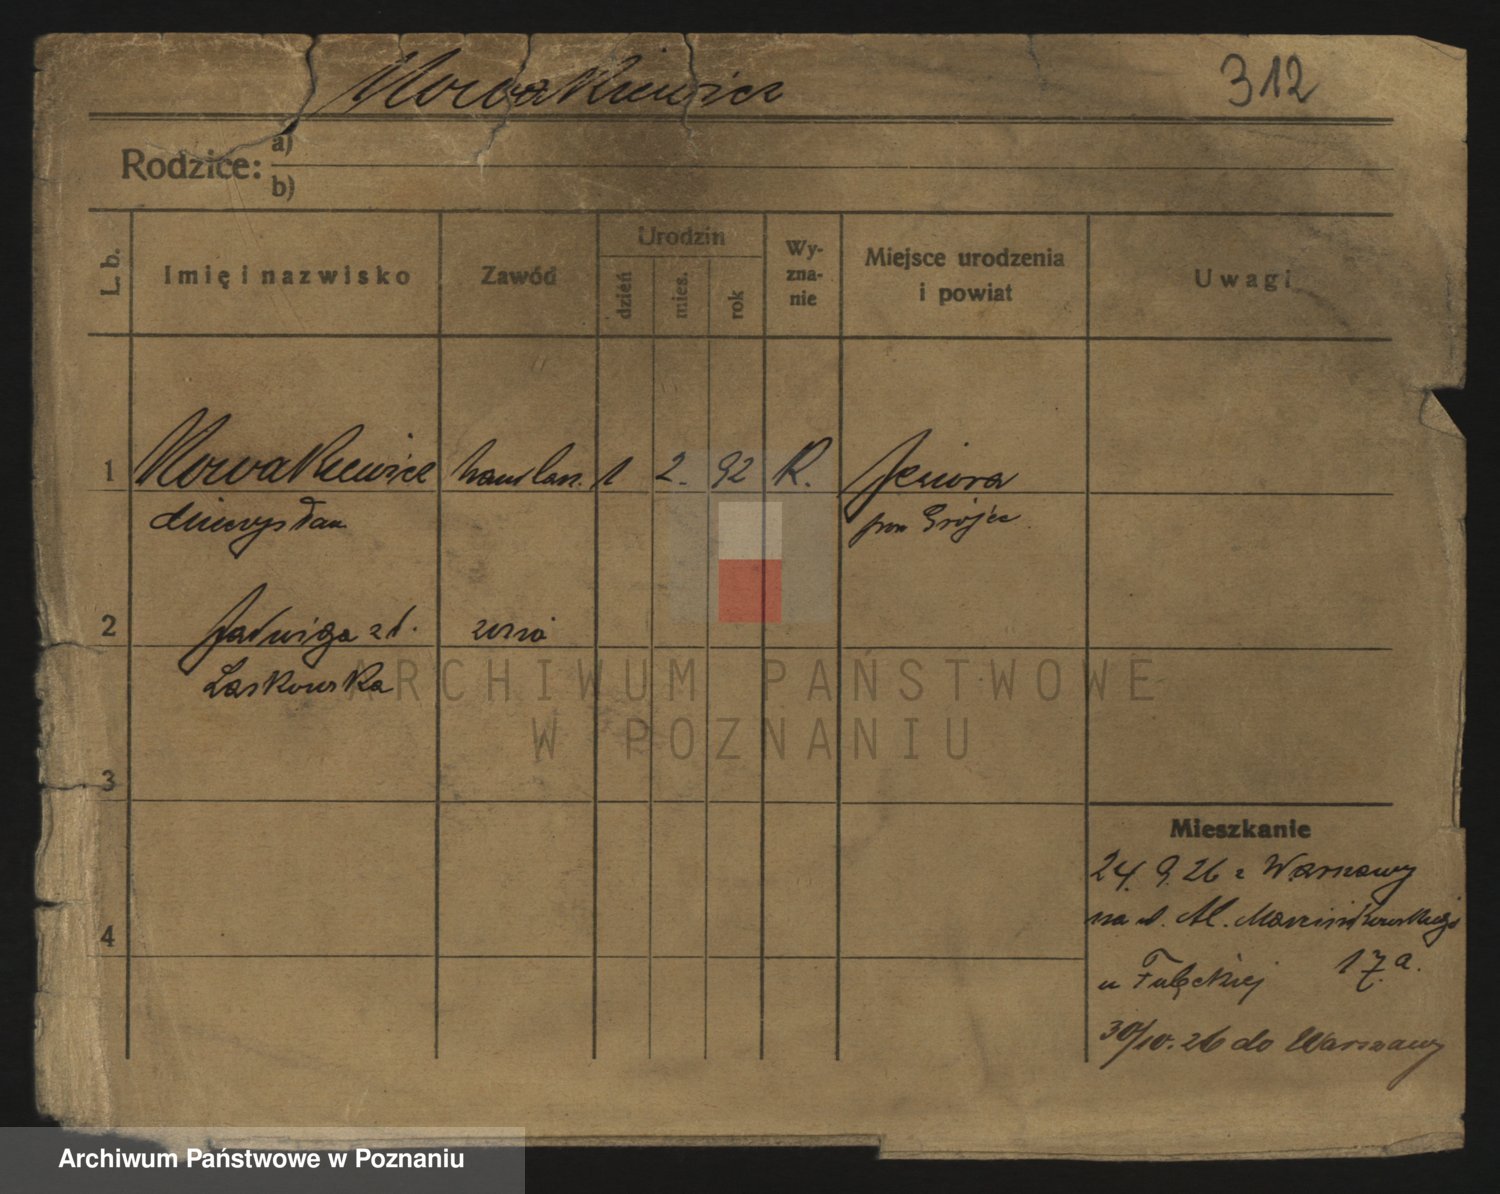 Nowakiewicz 312
Rodzice: a)
b)
L. b. Imię i nazwisko Zawód Urodzin dzień mies. rok Wy-zna-nie Miejsce urodzenia i powiat Uwagi
1 Nowakiewicz handlow. 1 2. 92 R. Jeziora
Mieczysław pow Grójec
2 Jadwiga zd. żona
Laskowska
3
Mieszkanie
24. 9. 26 z Warszawy
4 na ul. Al. Marcinkowskiego
u 17a.
30/10. 26 do Warszawy
ARCHIWUM PAŃSTWOWE
W POZNANIU
Archiwum Państwowe w Poznaniu